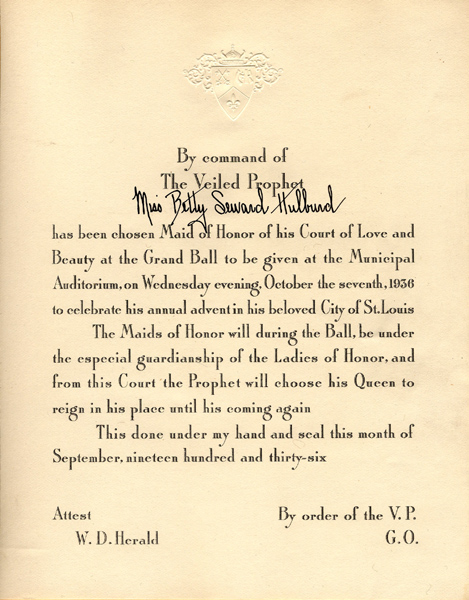 By command of
The Veiled Prophet
Miss Betty Seward Hulburd
has been chosen Maid of Honor of his Court of Love and
Beauty at the Grand Ball to be given at the Municipal
Auditorium, on Wednesday evening, October the seventh, 1936
to celebrate his annual advent in his beloved City of St. Louis
The Maids of Honor will during the Ball, be under
the especial guardianship of the Ladies of Honor, and
from this Court the Prophet will choose his Queen to
reign in his place until his coming again
This done under my hand and seal this month of
September, nineteen hundred and thirty-six
Attest
By order of the V. P.
W. D. Herald
G. O.